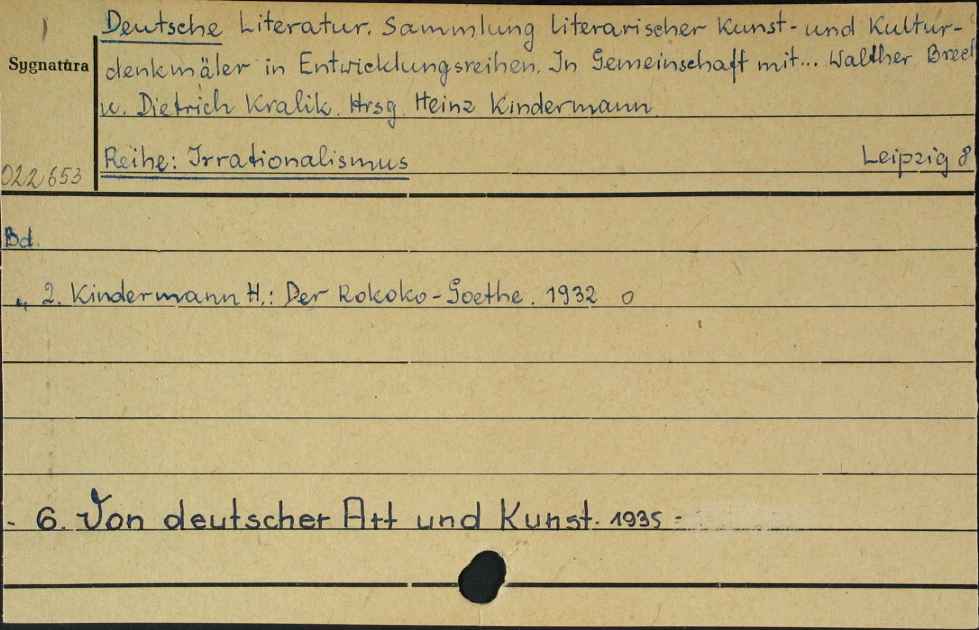 Deutsche Literatur. Sammlung literarischer Kunst- und Kultur-
Sygnatura
denkmäler in Entwicklungsreihen. In Gemeinschaft mit... Walther Brecht
u. Dietrich Kralik. Hrsg. Heinz Kindermann.
Reihe: Irrationalismus
Leipzig 8°
022653
Bd.
„ 2. Kindermann H.: Der Rokoko-Goethe. 1932 o
- 6. Von deutscher Art und Kunst. 1935 -